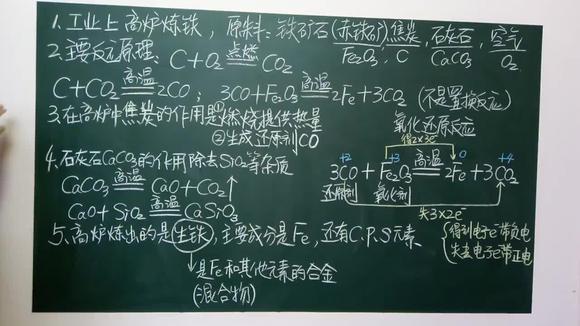 1、工业上高炉炼铁，原料：铁矿石(赤铁矿)，焦炭，石灰石，空气
Fe₂O₃、C CaCO₃ O₂
2、主要反应原理：C+O₂ 点燃 CO₂
C+CO₂ 高温 2CO；3CO+Fe₂O₃ 高温 2Fe+3CO₂ (不是置换反应)
氧化还原反应
3、在高炉中焦炭的作用是①燃烧提供热量
②生成还原剂CO
4、石灰石CaCO₃的作用除去SiO₂等杂质
CaCO₃ 高温 CaO+CO₂↑
CaO+SiO₂ 高温 CaSiO₃
得2×3e⁻
+2 +3 0 +4
3CO+Fe₂O₃ 高温 2Fe+3CO₂
还原剂 氧化剂
失3×2e⁻
得到电子e⁻带负电
失去电子e⁻带正电
5、高炉炼出的是生铁，主要成分是Fe，还有C.P.S元素.
是Fe和其他元素的合金
(混合物)